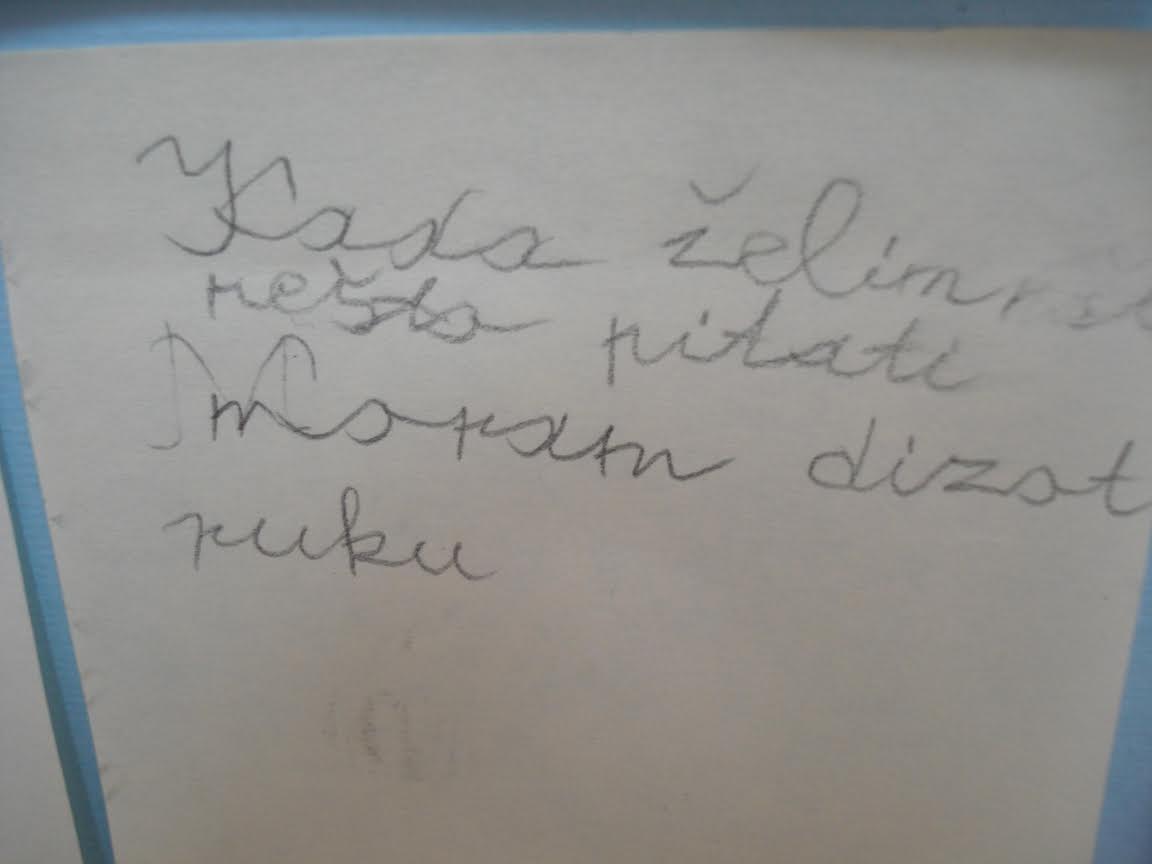 Kada želim
nešto pitati
Moram dizat
ruku